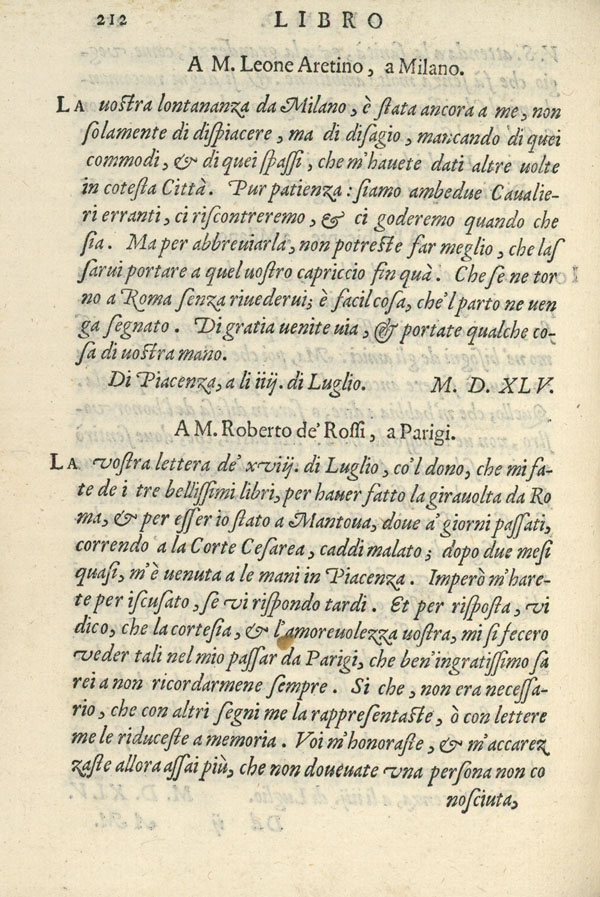 212 LIBRO
A M. Leone Aretino, a Milano.
LA uostra lontananza da Milano, è stata ancora a me, non
solamente di dispiacere, ma di disagio, mancando di quei
commodi, & di quei spassi, che m'hauete dati altre uolte
in cotesta Città. Pur patienza: siamo ambedue Caualie-
ri erranti, ci riscontreremo, & ci goderemo quando che
sia. Ma per abbreuiarla, non potreste far meglio, che las
sarui portare a quel uostro capriccio fin quà. Che se ne tor
no a Roma senza riuederui; è facil cosa, che'l parto ne uen
ga segnato. Di gratia uenite uia, & portate qualche co-
sa di uostra mano.
Di Piacenza, a li iiij. di Luglio. M. D. XLV.
A M. Roberto de' Rossi, a Parigi.
LA vostra lettera de' xviij. di Luglio, co'l dono, che mi fa-
te de i tre bellissimi libri, per hauer fatto la girauolta da Ro
ma, & per esser io stato a Mantoua, doue a' giorni passati,
correndo a la Corte Cesarea, caddi malato; dopo due mesi
quasi, m'è uenuta a le mani in Piacenza. Imperò m'hare-
te per iscusato, se vi rispondo tardi. Et per risposta, vi
dico, che la cortesia, & l'amoreuolezza uostra, mi si fecero
veder tali nel mio passar da Parigi, che ben'ingratissimo sa
rei a non ricordarmene sempre. Si che, non era necessa-
rio, che con altri segni me la rappresentaste, ò con lettere
me le riduceste a memoria. Voi m'honoraste, & m'accarez
zaste allora assai più, che non doueuate vna persona non co
nosciuta,